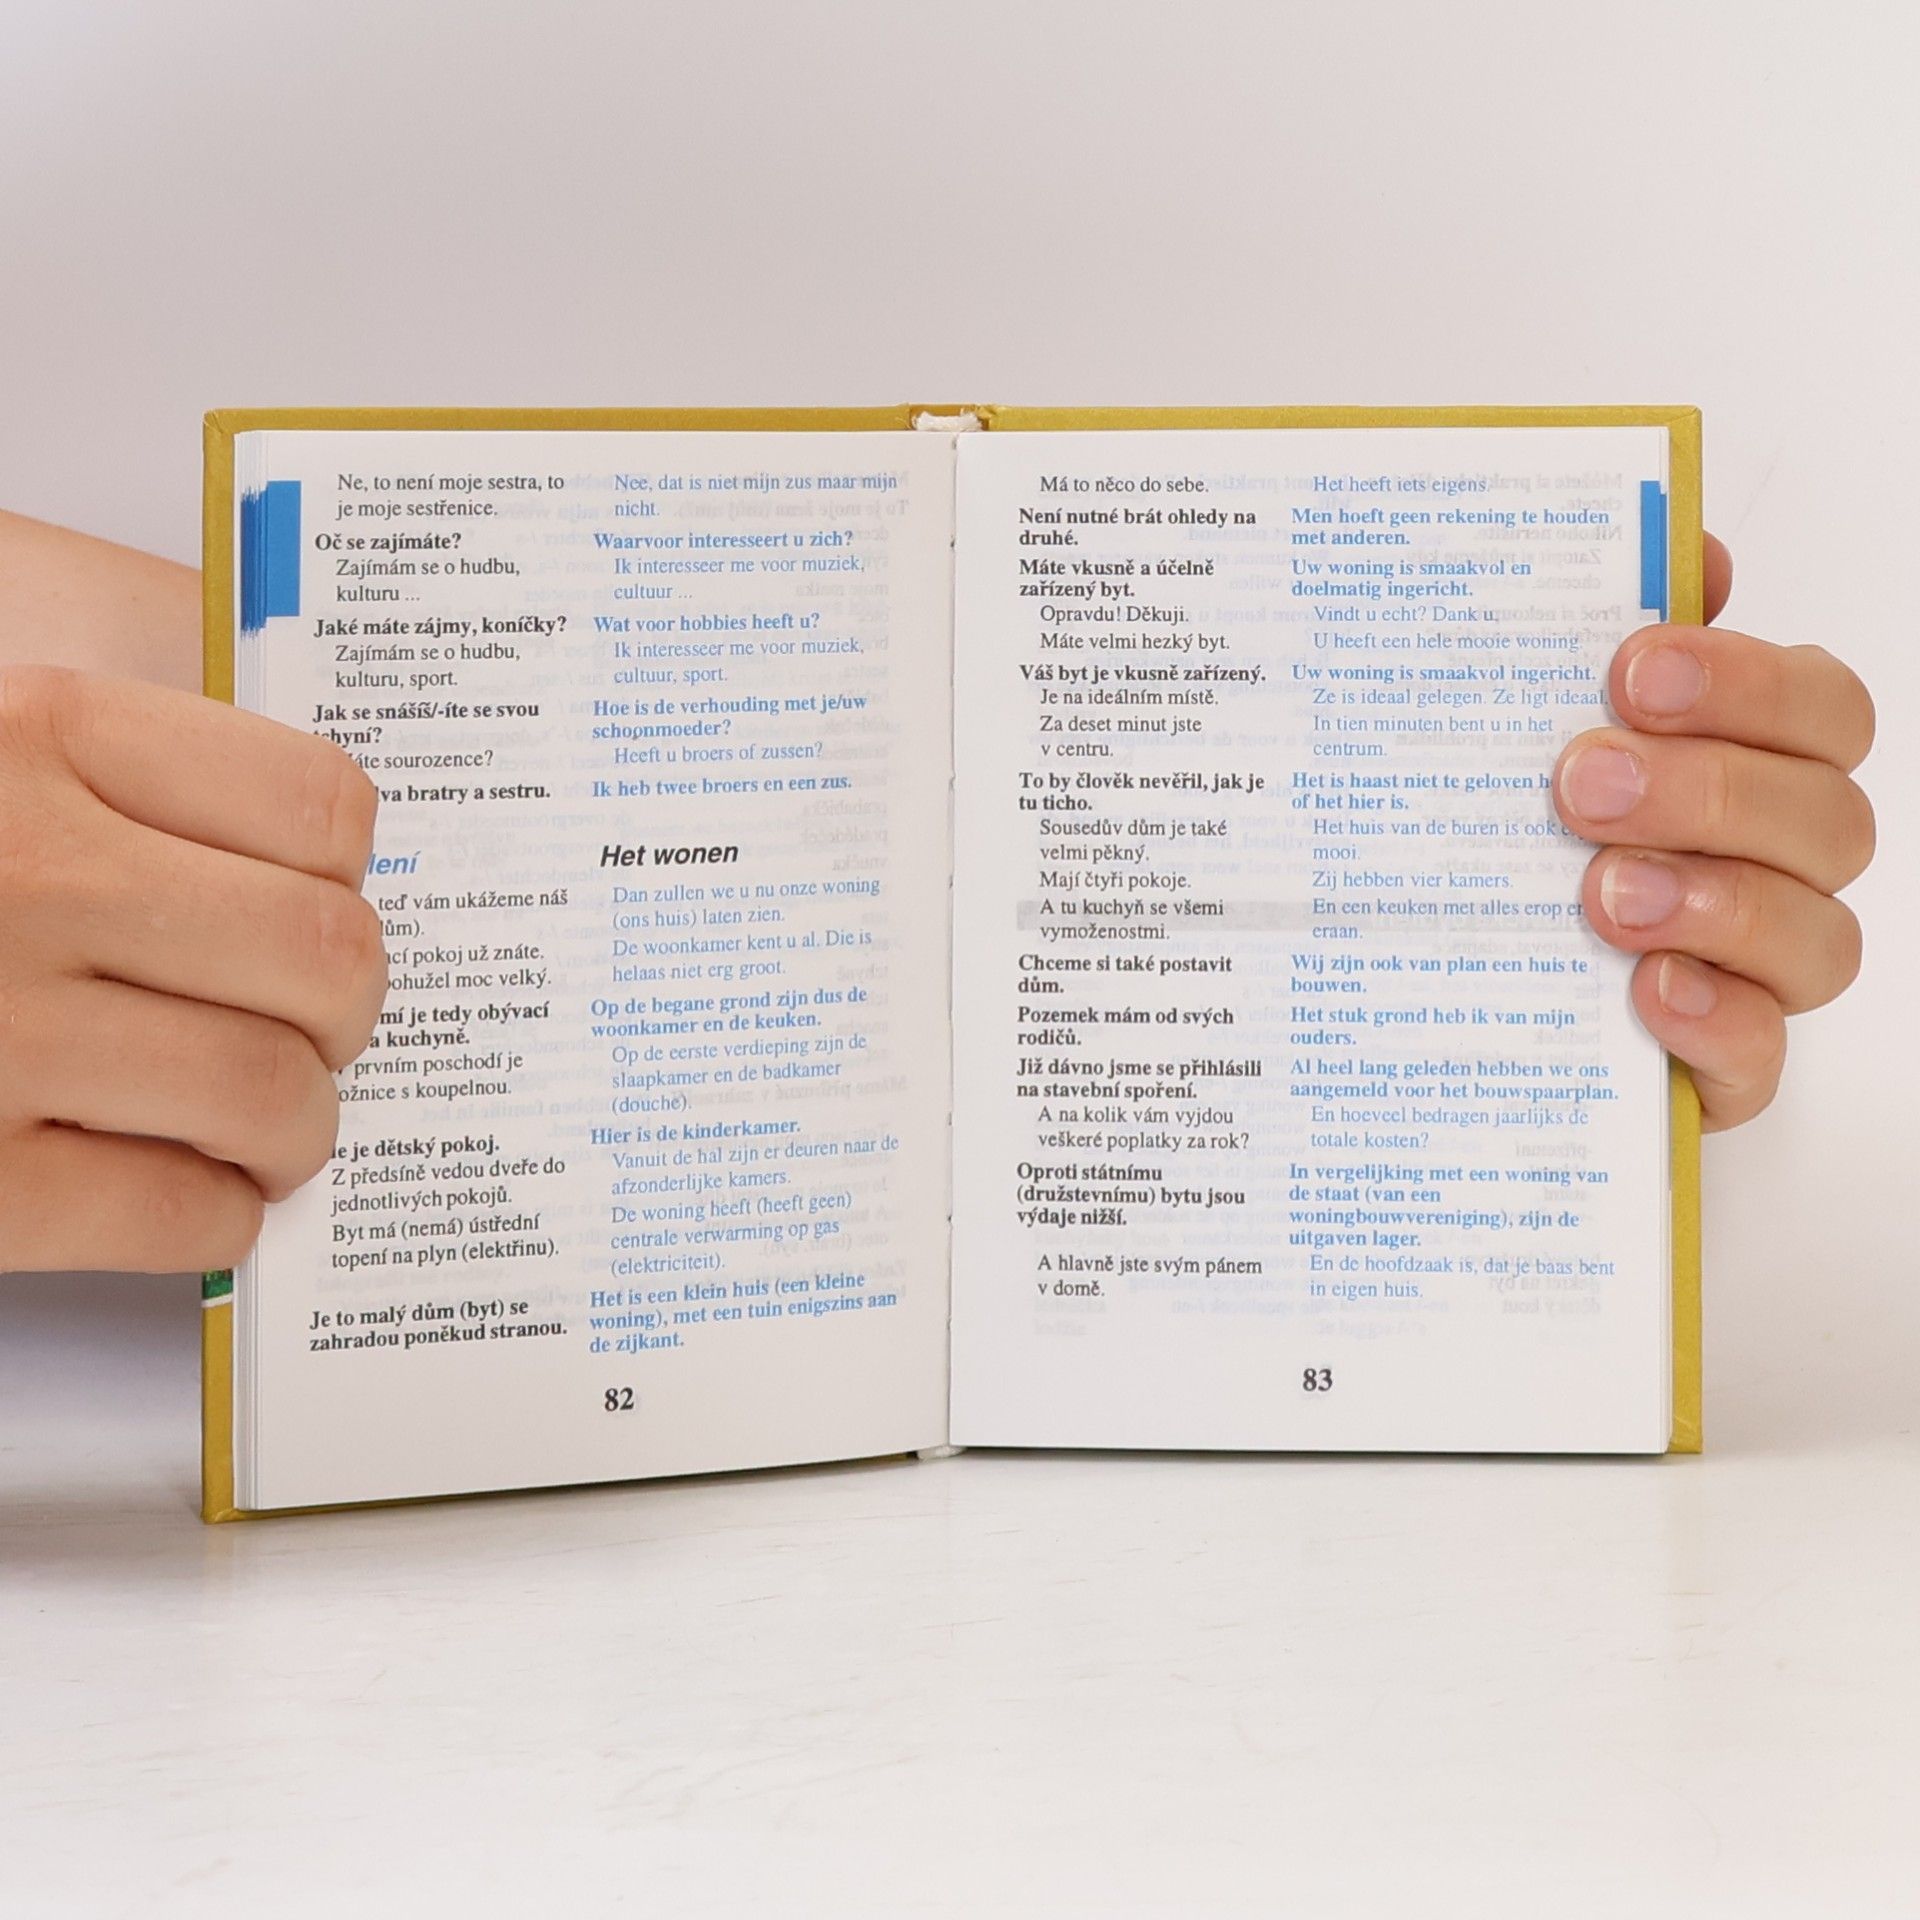 Ne, to není moje sestra, to
je moje sestřenice.
Oč se zajímáte?
Zajímám se o hudbu,
kulturu ...
Jaké máte zájmy, koníčky?
Zajímám se o hudbu,
kulturu, sport.
Jak se snášíš/-íte se svou
sourozence?
bratry a sestru.
teď vám ukážeme náš
pokoj už znáte.
moc velký.
je tedy obývací
a kuchyně.
prvním poschodí je
s koupelnou.
je dětský pokoj.
Z předsíně vedou dveře do
jednotlivých pokojů.
Byt má (nemá) ústřední
topení na plyn (elektřinu).
Je to malý dům (byt) se
zahradou poněkud stranou.
Nee, dat is niet mijn zus maar mijn
nicht.
Waarvoor interesseert u zich?
Ik interesseer me voor muziek,
cultuur ...
Wat voor hobbies heeft u?
Ik interesseer me voor muziek,
cultuur, sport.
Hoe is de verhouding met je/uw
schoonmoeder?
Heeft u broers of zussen?
Ik heb twee broers en een zus.
Het wonen
Dan zullen we u nu onze woning
(ons huis) laten zien.
De woonkamer kent u al. Die is
helaas niet erg groot.
Op de begane grond zijn dus de
woonkamer en de keuken.
Op de eerste verdieping zijn de
slaapkamer en de badkamer
(douche).
Hier is de kinderkamer.
Vanuit de hal zijn er deuren naar de
afzonderlijke kamers.
De woning heeft (heeft geen)
centrale verwarming op gas
(elektriciteit).
Het is een klein huis (een kleine
woning), met een tuin enigszins aan
de zijkant.
82
Má to něco do sebe.
Není nutné brát ohledy na
druhé.
Máte vkusně a účelně
zařízený byt.
Opravdu! Děkuji.
Máte velmi hezký byt.
Váš byt je vkusně zařízený.
Je na ideálním místě.
Za deset minut jste
v centru.
To by člověk nevěřil, jak je
tu ticho.
Sousedův dům je také
velmi pěkný.
Mají čtyři pokoje.
A tu kuchyň se všemi
vymoženostmi.
Chceme si také postavit
dům.
Pozemek mám od svých
rodičů.
Již dávno jsme se přihlásili
na stavební spoření.
A na kolik vám vyjdou
veškeré poplatky za rok?
Oproti státnímu
(družstevnímu) bytu jsou
výdaje nižší.
A hlavně jste svým pánem
v domě.
Het heeft iets eigens.
Men hoeft geen rekening te houden
met anderen.
Uw woning is smaakvol en
doelmatig ingericht.
Vindt u echt? Dank u,
U heeft een hele mooie woning.
Uw woning is smaakvol ingericht.
Ze is ideaal gelegen. Ze ligt ideaal.
In tien minuten bent u in het
centrum.
Het is haast niet te geloven
of het hier is.
Het huis van de buren is ook
mooi.
Zij hebben vier kamers.
En een keuken met alles erop
eraan.
Wij zijn ook van plan een huis te
bouwen.
Het stuk grond heb ik van mijn
ouders.
Al heel lang geleden hebben we ons
aangemeld voor het bouwspaarplan.
En hoeveel bedragen jaarlijks de
totale kosten?
In vergelijking met een woning van
de staat (van een
woningbouwvereniging), zijn de
uitgaven lager.
En de hoofdzaak is, dat je baas bent
in eigen huis.
83